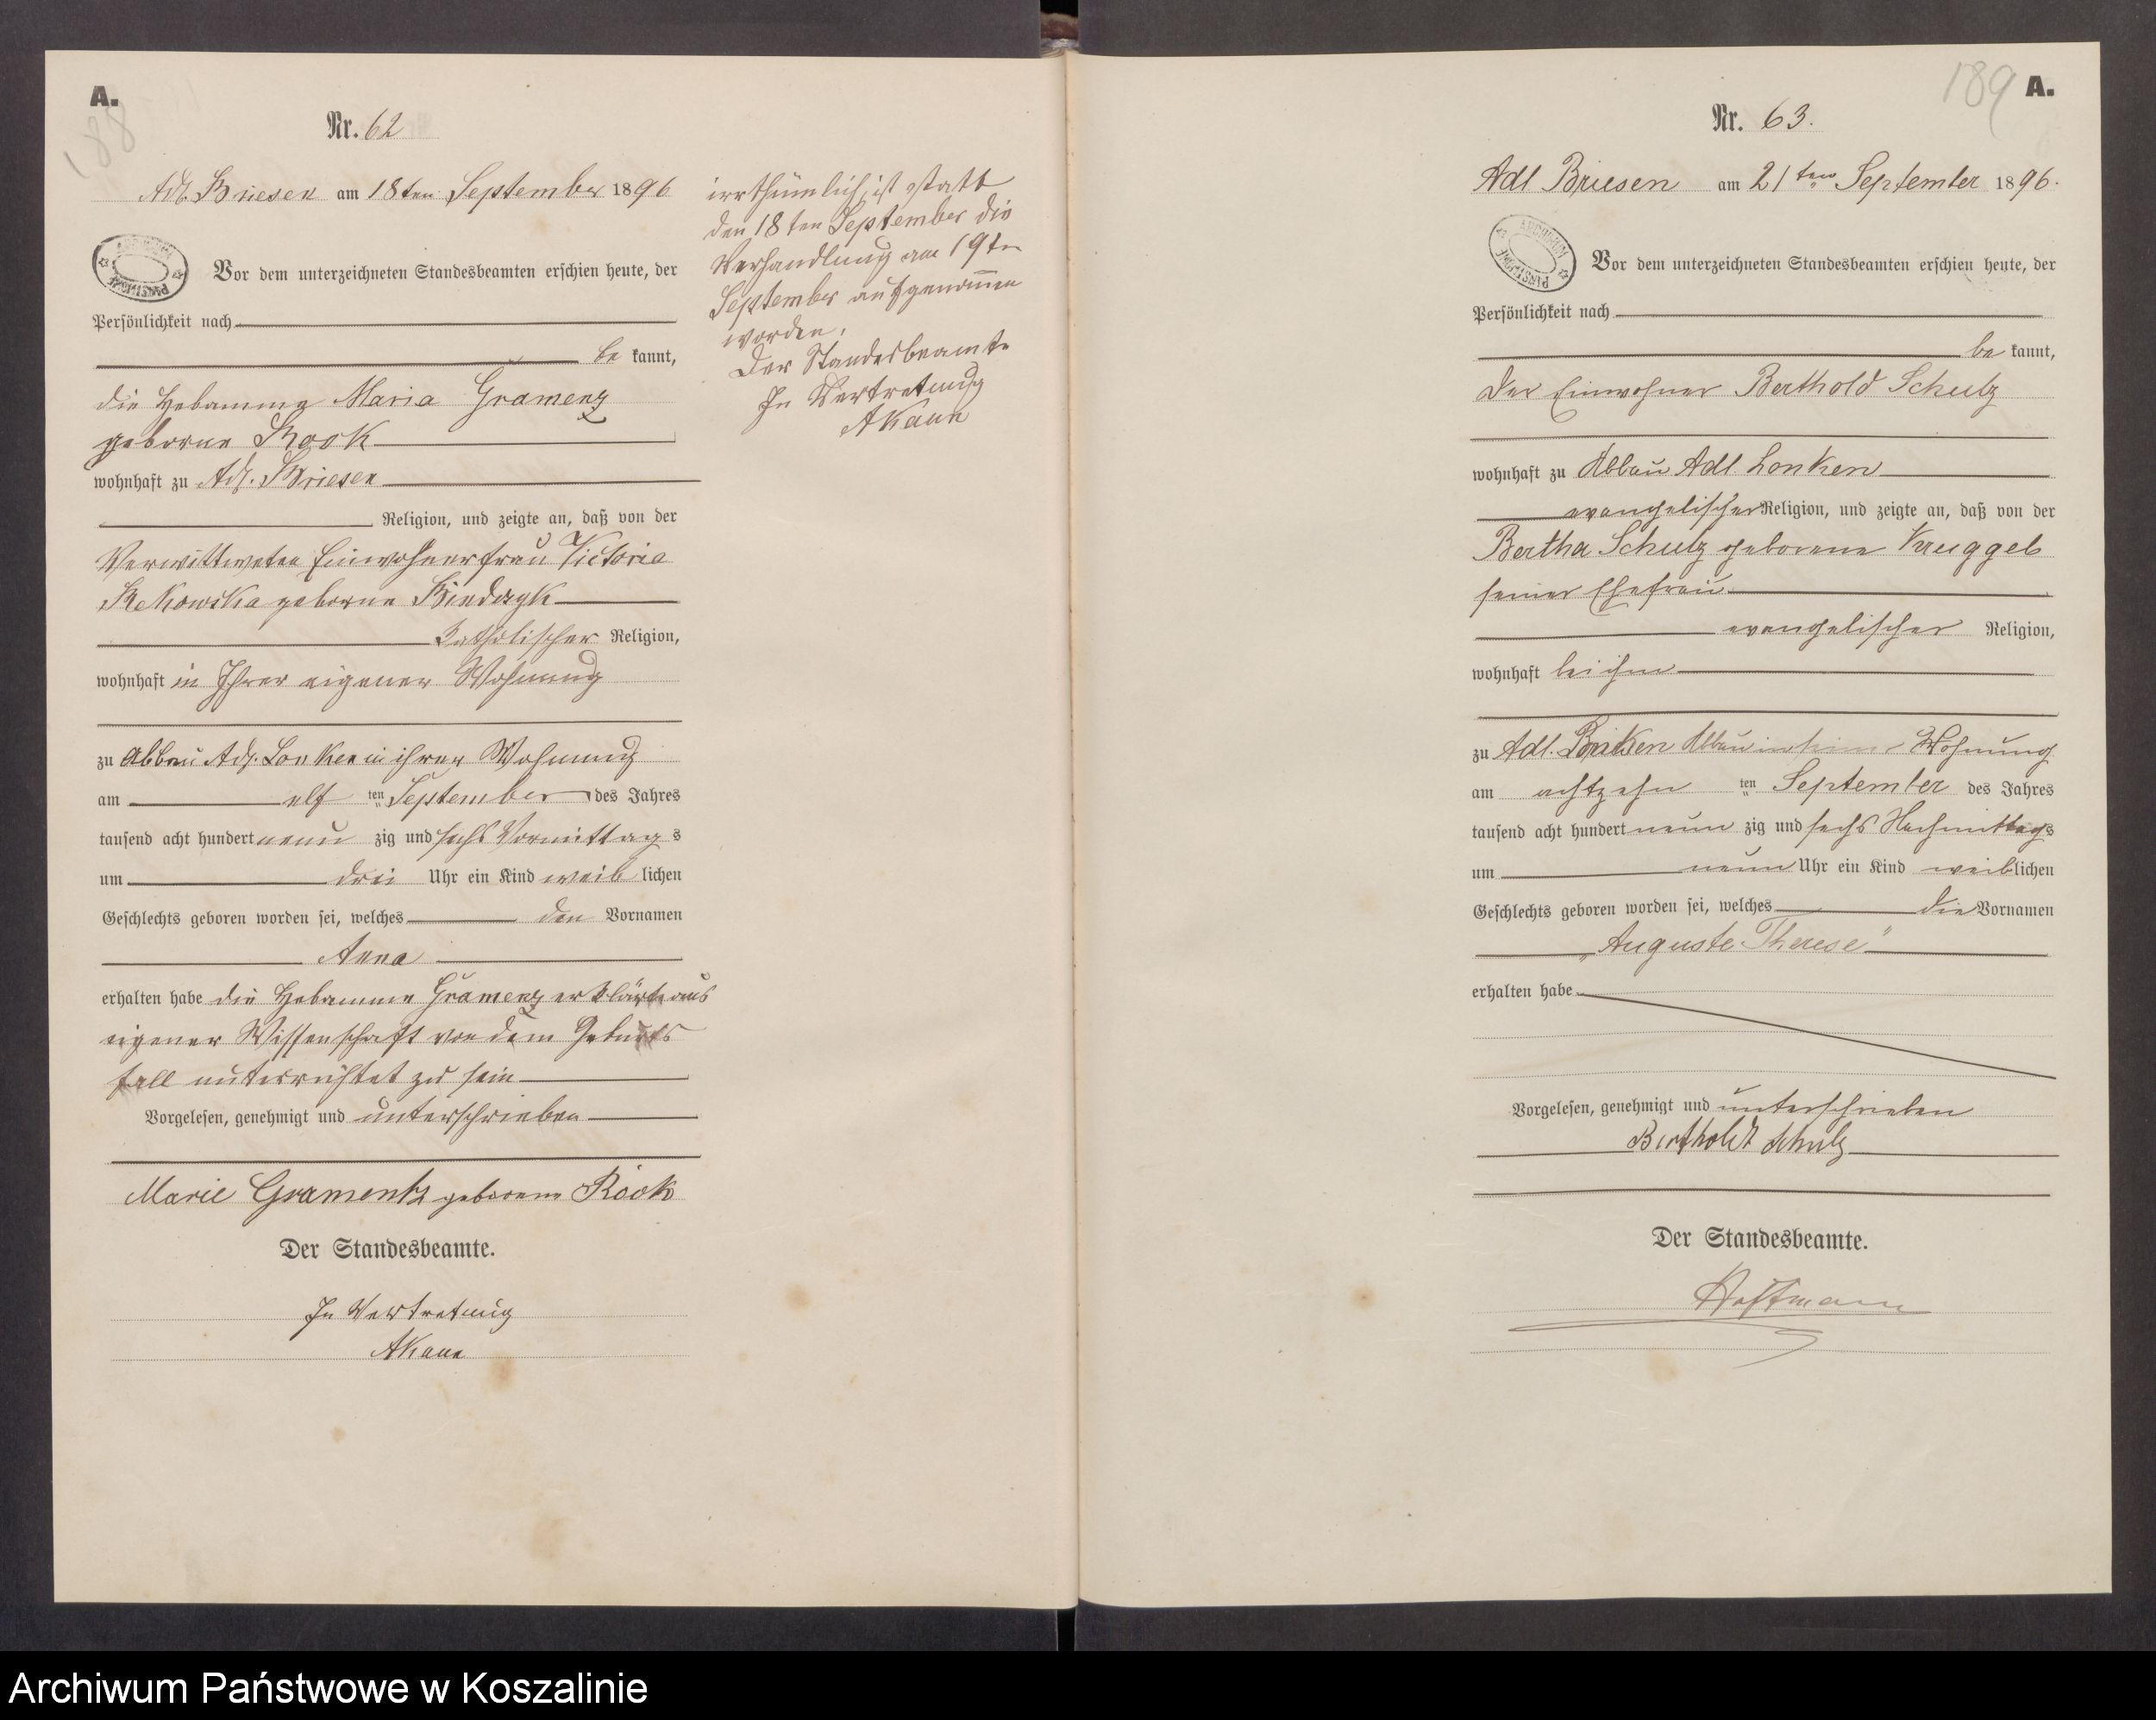 A.
188
Nr. 62
Adl. Briesen am 18ten September 1896
Vor dem unterzeichneten Standesbeamten erschien heute, der
Persönlichkeit nach
be kannt,
die Hebamme Maria Gramenz
geborne Rook
wohnhaft zu Adl. Briesen
Religion, und zeigte an, daß von der
Verwittweten Einwohnerfrau Victoria
geborne
katholischer Religion,
wohnhaft in Ihrer eigener Wohnung
zu Abbau Adl. Lonken in ihrer Wohnung
am elf ten September des Jahres
tausend acht hundert neun zig und sechs Vormittag s
um drei Uhr ein Kind weib lichen
Geschlechts geboren worden sei, welches den Vornamen
Anna
erhalten habe die Hebamme Gramenz erklärte aus
eigener Wissenschaft von dem Geburts
fall unterrichtet zu sein
Vorgelesen, genehmigt und unterschrieben
Marie Gramentz geborene Rook
Der Standesbeamte.
In Vertretung
AKaun
irrthümlich ist statt
den 18ten September die
Verhandlung am 19ten
September aufgenommen
worden.
Der Standesbeamte
In Vertretung
AKaun
189 A.
Nr. 63.
Adl Briesen am 21ten September 1896.
Vor dem unterzeichneten Standesbeamten erschien heute, der
Persönlichkeit nach
be kannt,
Der Einwohner Berthold Schulz
wohnhaft zu Abbau Adl. Lonken
evangelischer Religion, und zeigte an, daß von der
Bertha Schulz geborene Kruggel
seiner Ehefrau
evangelischer Religion,
wohnhaft bei ihm
zu Adl. Lonken Abbau in seiner Wohnung
am achtzehn ten September des Jahres
tausend acht hundert neun zig und sechs Nachmittags
um neun Uhr ein Kind weiblichen
Geschlechts geboren worden sei, welches die Vornamen
„Auguste Therese"
erhalten habe
Vorgelesen, genehmigt und unterschrieben
Bertholdt Schulz
Der Standesbeamte.
Hoffmann
Archiwum Państwowe w Koszalinie